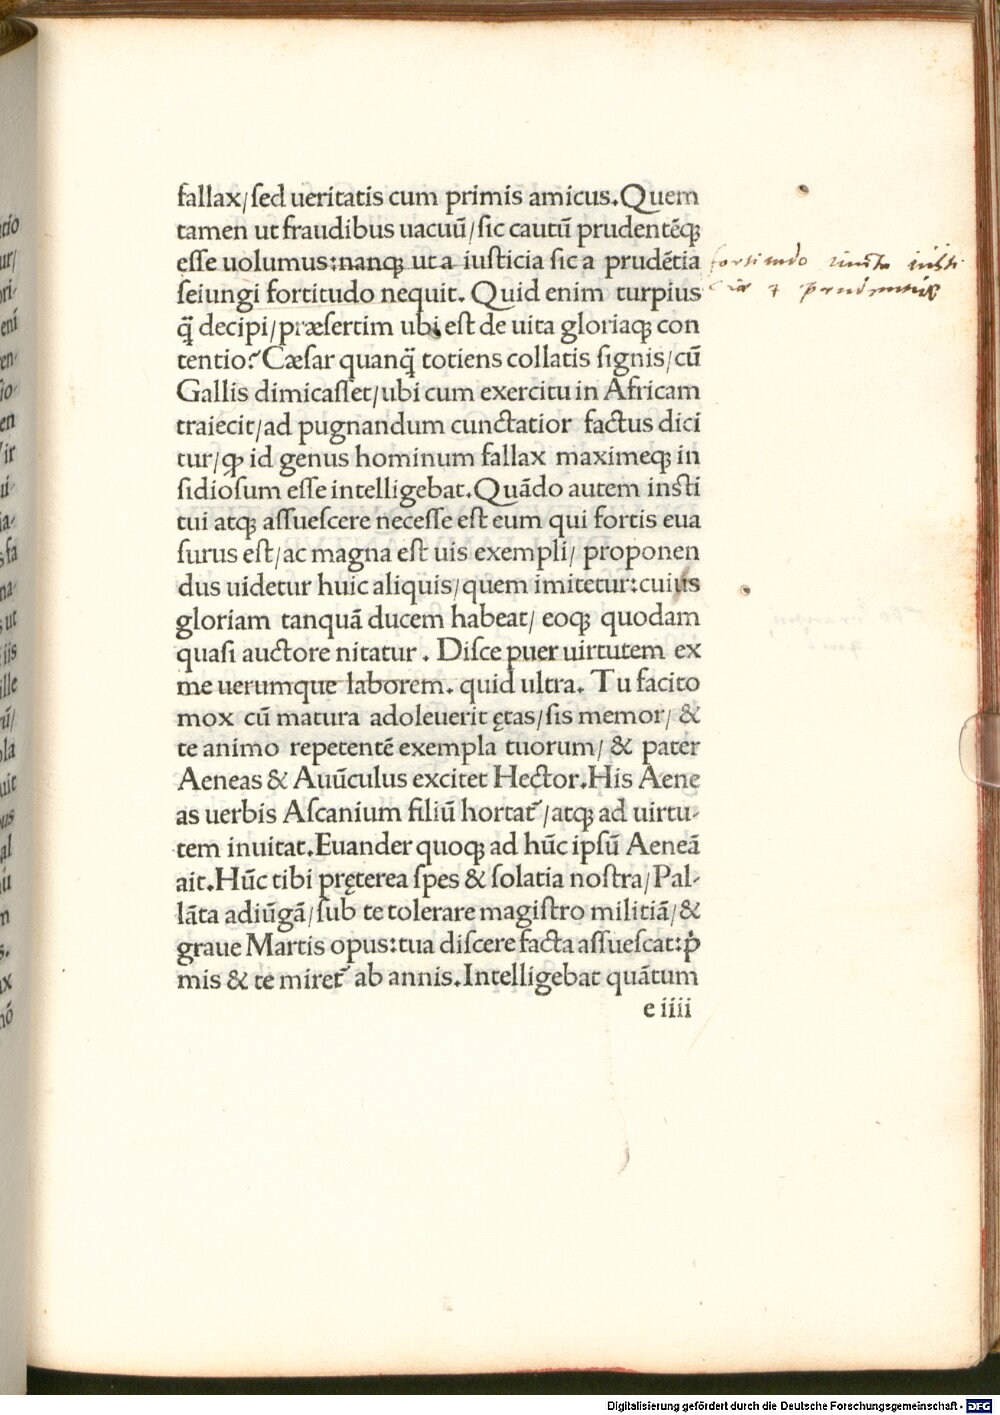 fallax/sed ueritatis cum primis amicus.Quem
tamen ut fraudibus uacuū/sic cautū prudentēqꝫ
esse uolumus:nanqꝫ ut a iusticia sic a prudētia
seiungi fortitudo nequit. Quid enim turpius
q̄ decipi/præsertim ubi est de uita gloriaqꝫ con
tentio? Cæsar quanq̄ totiens collatis signis/cū
Gallis dimicasset/ubi cum exercitu in Africam
traiecit/ad pugnandum cunctatior factus dici
tur/ꝙ id genus hominum fallax maximeqꝫ in
sidiosum esse intelligebat.Quādo autem insti
tui atqꝫ assuescere necesse est eum qui fortis eua
surus est/ac magna est uis exempli/ proponen
dus uidetur huic aliquis/quem imitetur:cuius
gloriam tanquā ducem habeat/ eoqꝫ quodam
quasi auctore nitatur. Disce puer uirtutem ex
me uerumque laborem. quid ultra. Tu facito
mox cū matura adoleuerit ętas/sis memor/ &
te animo repetentē exempla tuorum/ & pater
Aeneas & Auūculus excitet Hector.His Aene
as uerbis Ascanium filiū hortat᷑/atqꝫ ad uirtu-
tem inuitat.Euander quoqꝫ ad hūc ipsū Aeneā
ait.Hūc tibi pręterea spes & solatia nostra/Pal-
lāta adiūgā/sub te tolerare magistro militiā/&
graue Martis opus:tua discere facta assuescat:p̓
mis & te miret᷑ ab annis.Intelligebat quātum
e iiii
fortitudo iuncta iusti
ciæ & prudentiæ
Digitalisierung gefördert durch die Deutsche Forschungsgemeinschaft - DFG